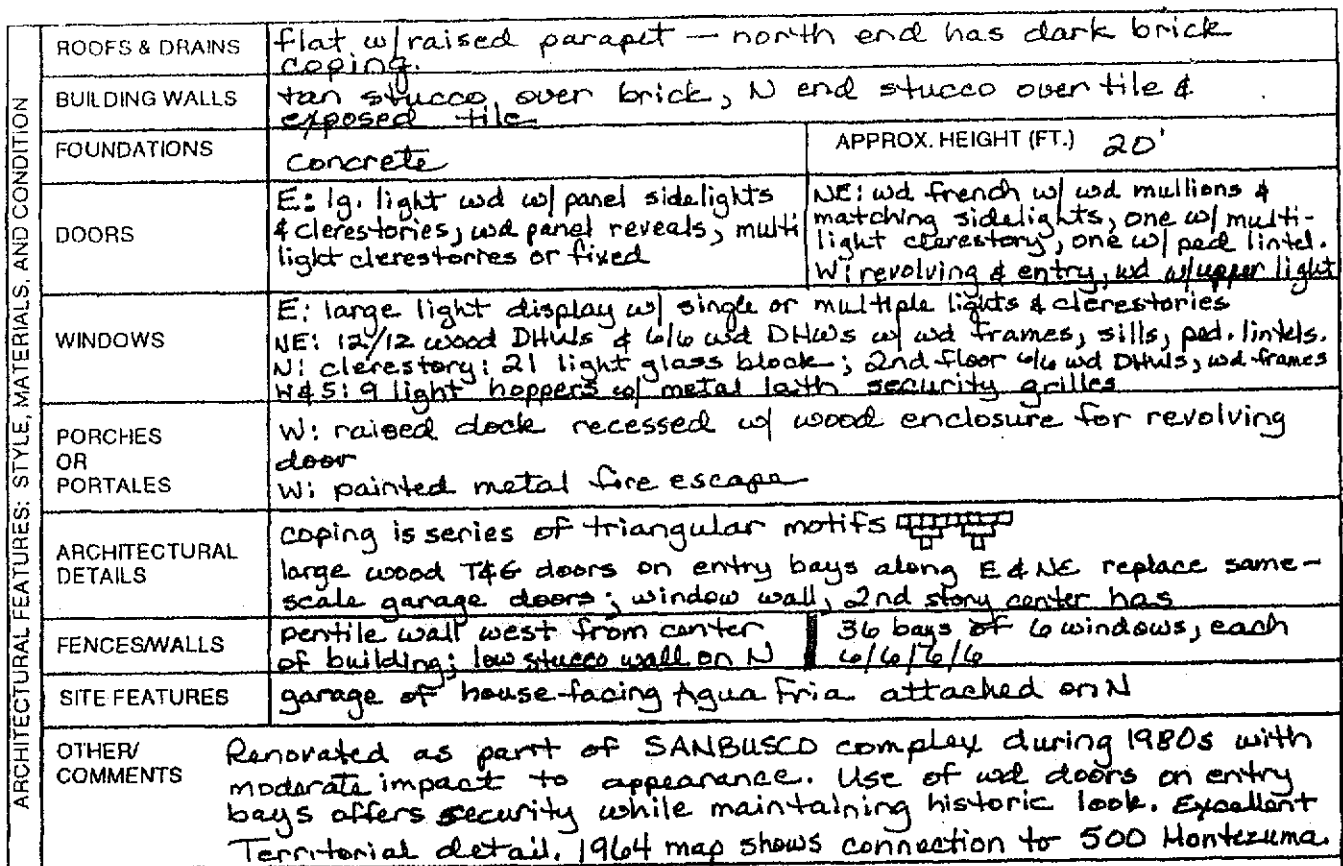 ARCHITECTURAL FEATURES: STYLE, MATERIALS, AND CONDITION
ROOFS & DRAINS
flat w/raised parapet — north end has dark brick
coping.
BUILDING WALLS
tan stucco over brick, N end stucco over tile &
exposed tile
FOUNDATIONS
concrete
APPROX. HEIGHT (FT.) 20'
DOORS
E: lg. light wd w/ panel sidelights
& clerestories, wd panel reveals, multi
light clerestories or fixed
NE: wd french w/ wd mullions &
matching sidelights, one w/ multi-
light clerestory, one w/ ped lintel.
W: revolving & entry, wd w/upper light
WINDOWS
E: large light display w/ single or multiple lights & clerestories
NE: 12/12 wood DHWs & 6/6 wd DHWs w/ wd frames, sills, ped. lintels.
N: clerestory: 21 light glass block; 2nd floor 6/6 wd DHWs, wd frames
W&S: 9 light hoppers w/ metal lath security grilles
PORCHES
OR
PORTALES
W: raised dock recessed w/ wood enclosure for revolving
door
W: painted metal fire escape
ARCHITECTURAL
DETAILS
coping is series of triangular motifs
large wood T&G doors on entry bays along E & NE replace same-
scale garage doors; window wall, 2nd story center has
FENCES/WALLS
pentile wall west from center
of building; low stucco wall on N
36 bays of 6 windows, each
6/6/6/6
SITE FEATURES
garage of house facing Agua Fria attached on N
OTHER/
COMMENTS
Renovated as part of SANBUSCO complex during 1980s with
moderate impact to appearance. Use of wd doors on entry
bays offers security while maintaining historic look. Excellent
Territorial detail. 1964 map shows connection to 500 Montezuma.